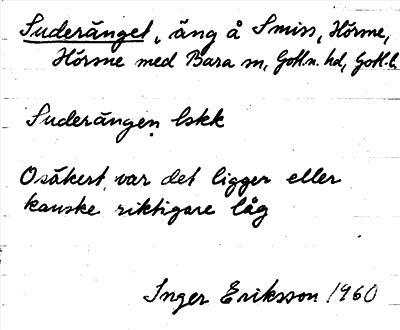 Suderänget, äng å Smiss, Hörsne,
Hörsne med Bara sn, Gotl.n. hd, Gotl.l.
Suderängen lskk
Osäkert var det ligger eller
kanske riktigare låg
Inger Eriksson 1960